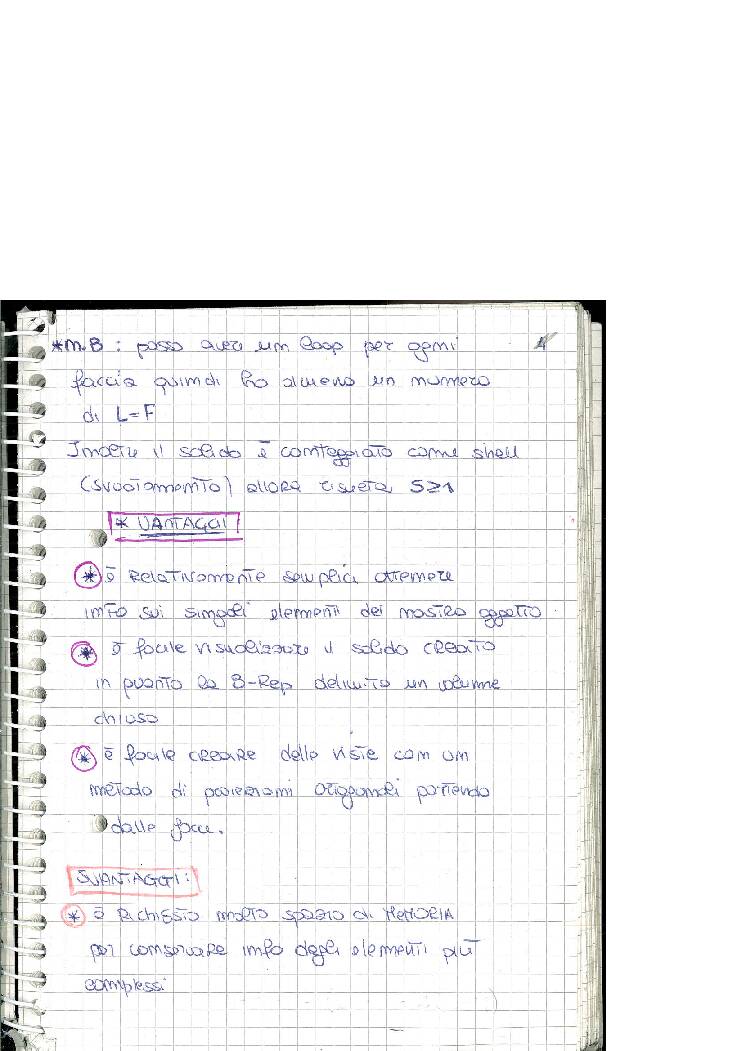 *n.B : posso avere un loop per ogni 4
faccia quindi ho almeno un numero
di L=F
Inoltre il solido è conteggiato come shell
(svuotamento) allora S≥1
* VANTAGGI
* è RELATIVAMENTE semplice ottenere
info sui singoli elementi del nostro oggetto.
* è facile visualizzare il solido creato
in quanto la B-Rep delimita un volume
chiuso
* è facile creare delle viste con un
metodo di proiezioni ortogonali partendo
dalle facce.
SVANTAGGI:
* è Richiesto molto spazio di MEMORIA
per conservare info degli elementi più
complessi